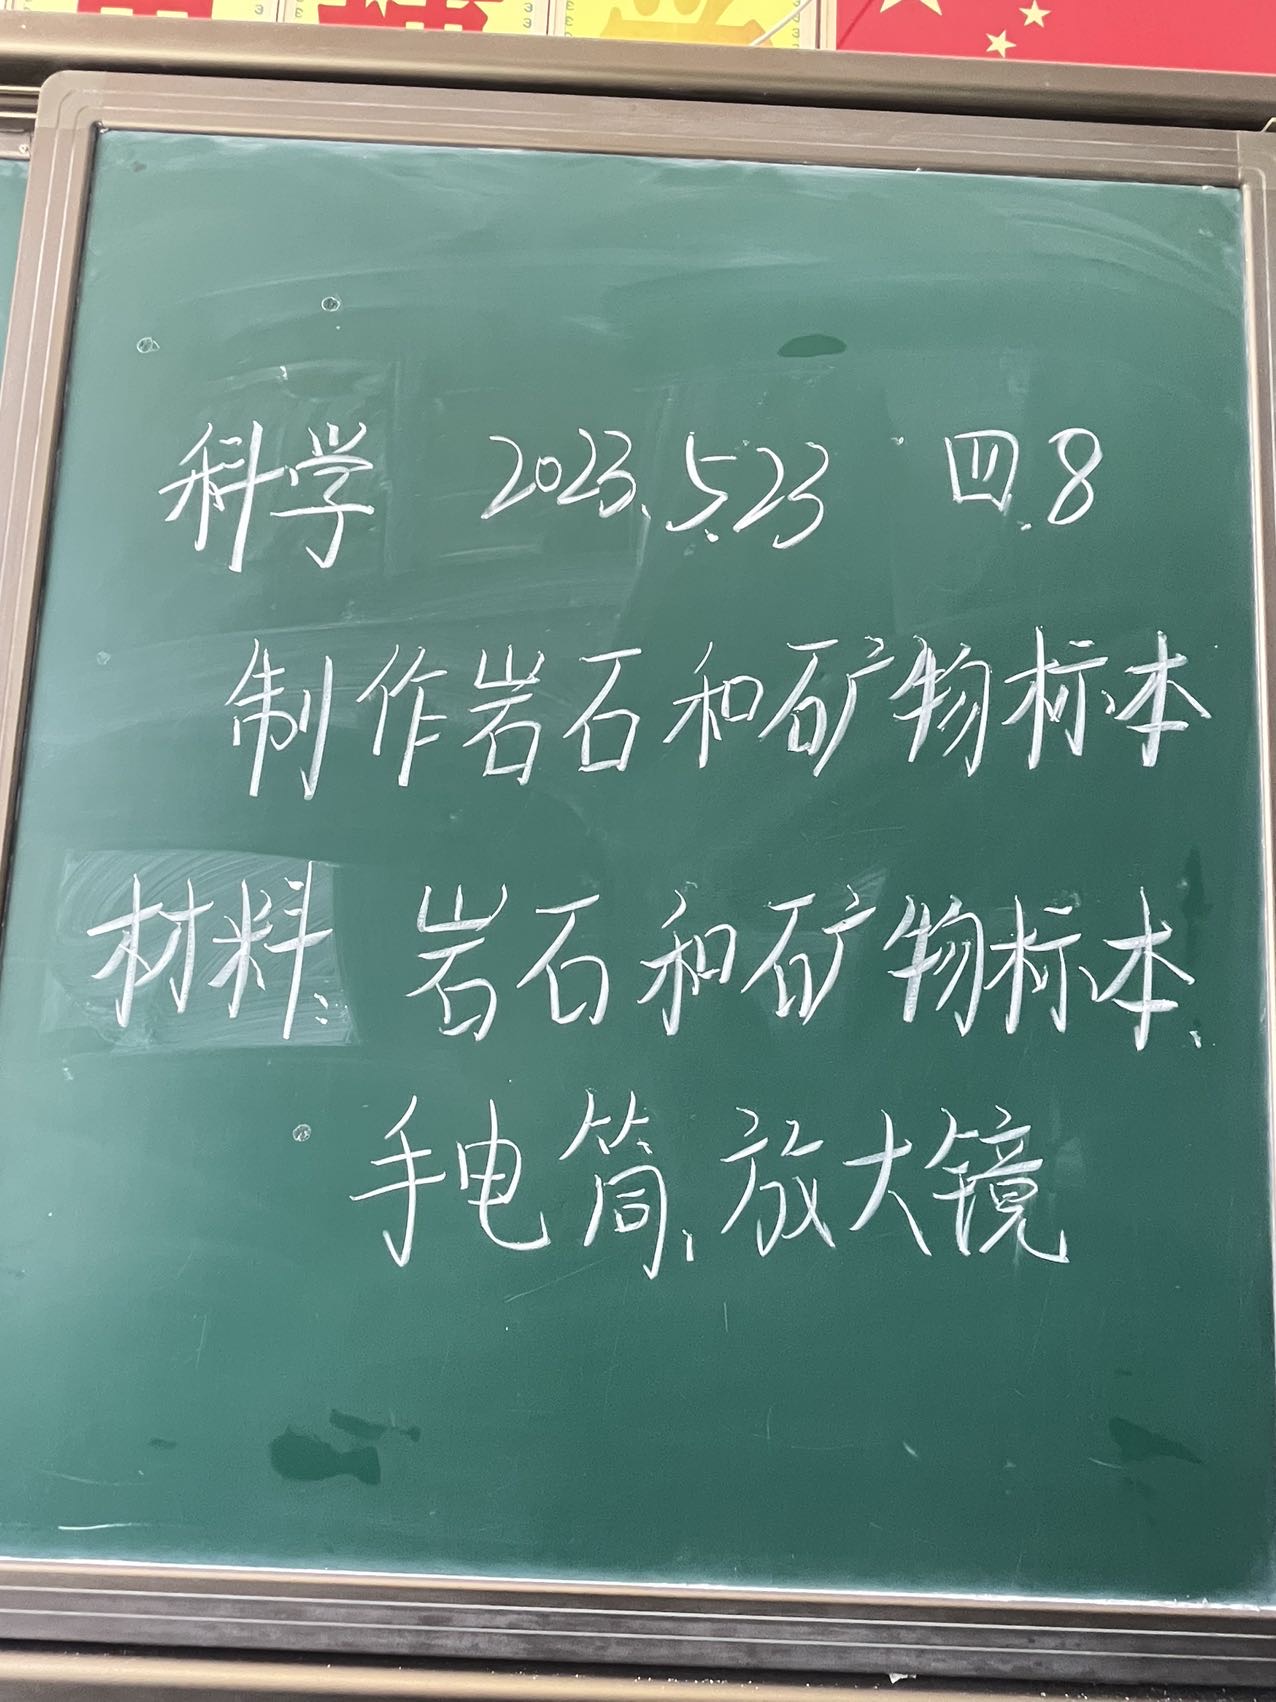 科学 2023.5.23 四.8
制作岩石和矿物标本
材料: 岩石和矿物标本、
手电筒、放大镜